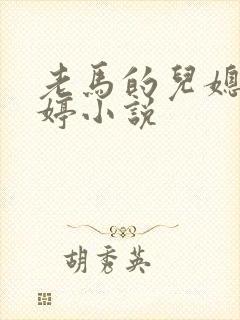 老馬的兒媳
婷小說
胡秀英